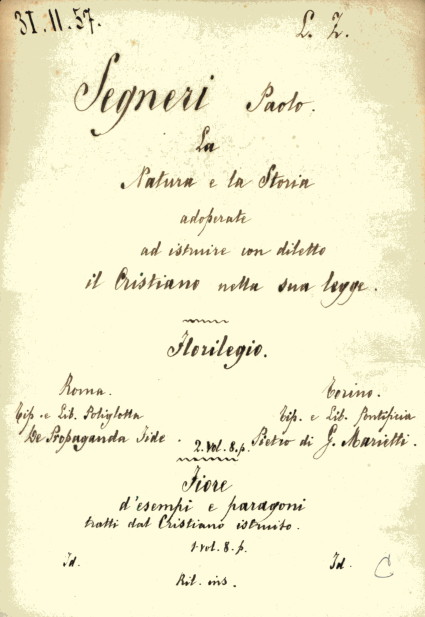 31.11.57. L. Z.
Segneri Paolo.
La
Natura e la Storia
adoperate
ad istruire con diletto
il Cristiano nella sua legge.
Florilegio.
Roma. Torino.
Tip. e Lib. Poliglotta Tip. e Lib. Pontificia
De Propaganda Fide. Pietro di G. Marietti.
2. vol. 8. p.
Fiore
d'esempi e paragoni
tratti dal Cristiano istruito.
1. vol. 8. p.
Id. Id. C
Ril. ins.